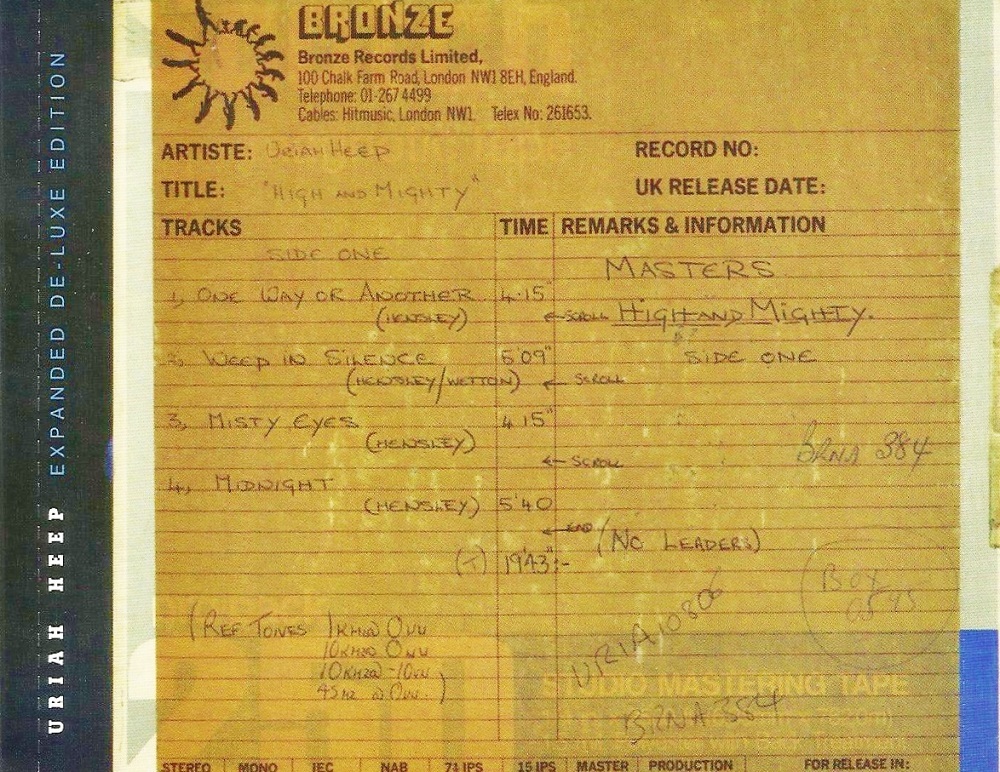 URIAH HEEP EXPANDED DE-LUXE EDITION
BRONZE
Bronze Records Limited,
100 Chalk Farm Road, London NW1 8EH, England.
Telephone: 01-267 4499
Cables: Hitmusic, London NW1. Telex No: 261653.
ARTISTE: URIAH HEEP
RECORD NO:
TITLE: "HIGH AND MIGHTY"
UK RELEASE DATE:
TRACKS TIME REMARKS & INFORMATION
SIDE ONE
MASTERS
1, ONE WAY OR ANOTHER 4·15"
(HENSLEY) ← SCROLL HIGH AND MIGHTY.
2, WEEP IN SILENCE 5'09" SIDE ONE
(HENSLEY/WETTON) ← SCROLL
3, MISTY EYES 4 15"
(HENSLEY)
BRNA 384
← SCROLL
4, MIDNIGHT
(HENSLEY) 5'40
← END (NO LEADERS)
(T) 19'43":-
BOX
(REF TONES 1KHZ@ 0VU
10KHZ@ 0VU
10KHZ@ -10VU
45HZ @ 0VU.)
URIA 10806
STUDIO MASTERING TAPE
BRNA 384
STEREO MONO IEC NAB 7½ IPS 15 IPS MASTER PRODUCTION FOR RELEASE IN: